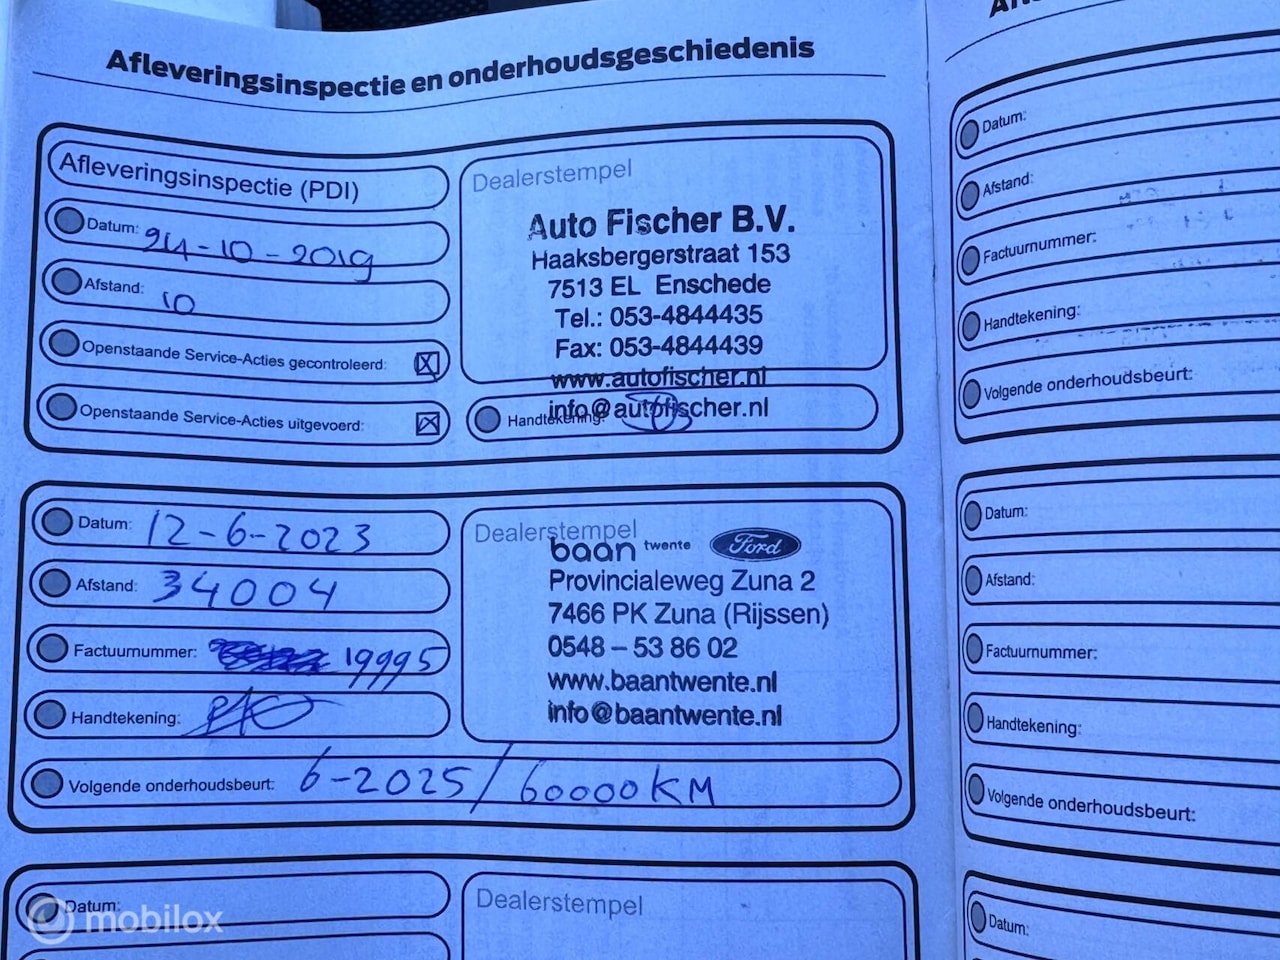 Afleveringsinspectie en onderhoudsgeschiedenis
Afleveringsinspectie (PDI)
Datum: 24-10-2019
Afstand: 10
Openstaande Service-Acties gecontroleerd:
Openstaande Service-Acties uitgevoerd:
Dealerstempel
Auto Fischer B.V.
Haaksbergerstraat 153
7513 EL Enschede
Tel.: 053-4844435
Fax: 053-4844439
www.autofischer.nl
info@autofischer.nl
Handtekening:
Datum: 12-6-2023
Afstand: 34004
Factuurnummer: 19995
Handtekening:
Volgende onderhoudsbeurt: 6-2025/60000KM
Dealerstempel
baan twente Ford
Provincialeweg Zuna 2
7466 PK Zuna (Rijssen)
0548 – 53 86 02
www.baantwente.nl
info@baantwente.nl
Datum:
Dealerstempel
Datum:
Afstand:
Factuurnummer:
Handtekening:
Volgende onderhoudsbeurt:
Datum:
Afstand:
Factuurnummer:
Handtekening:
Volgende onderhoudsbeurt:
Datum:
mobilox